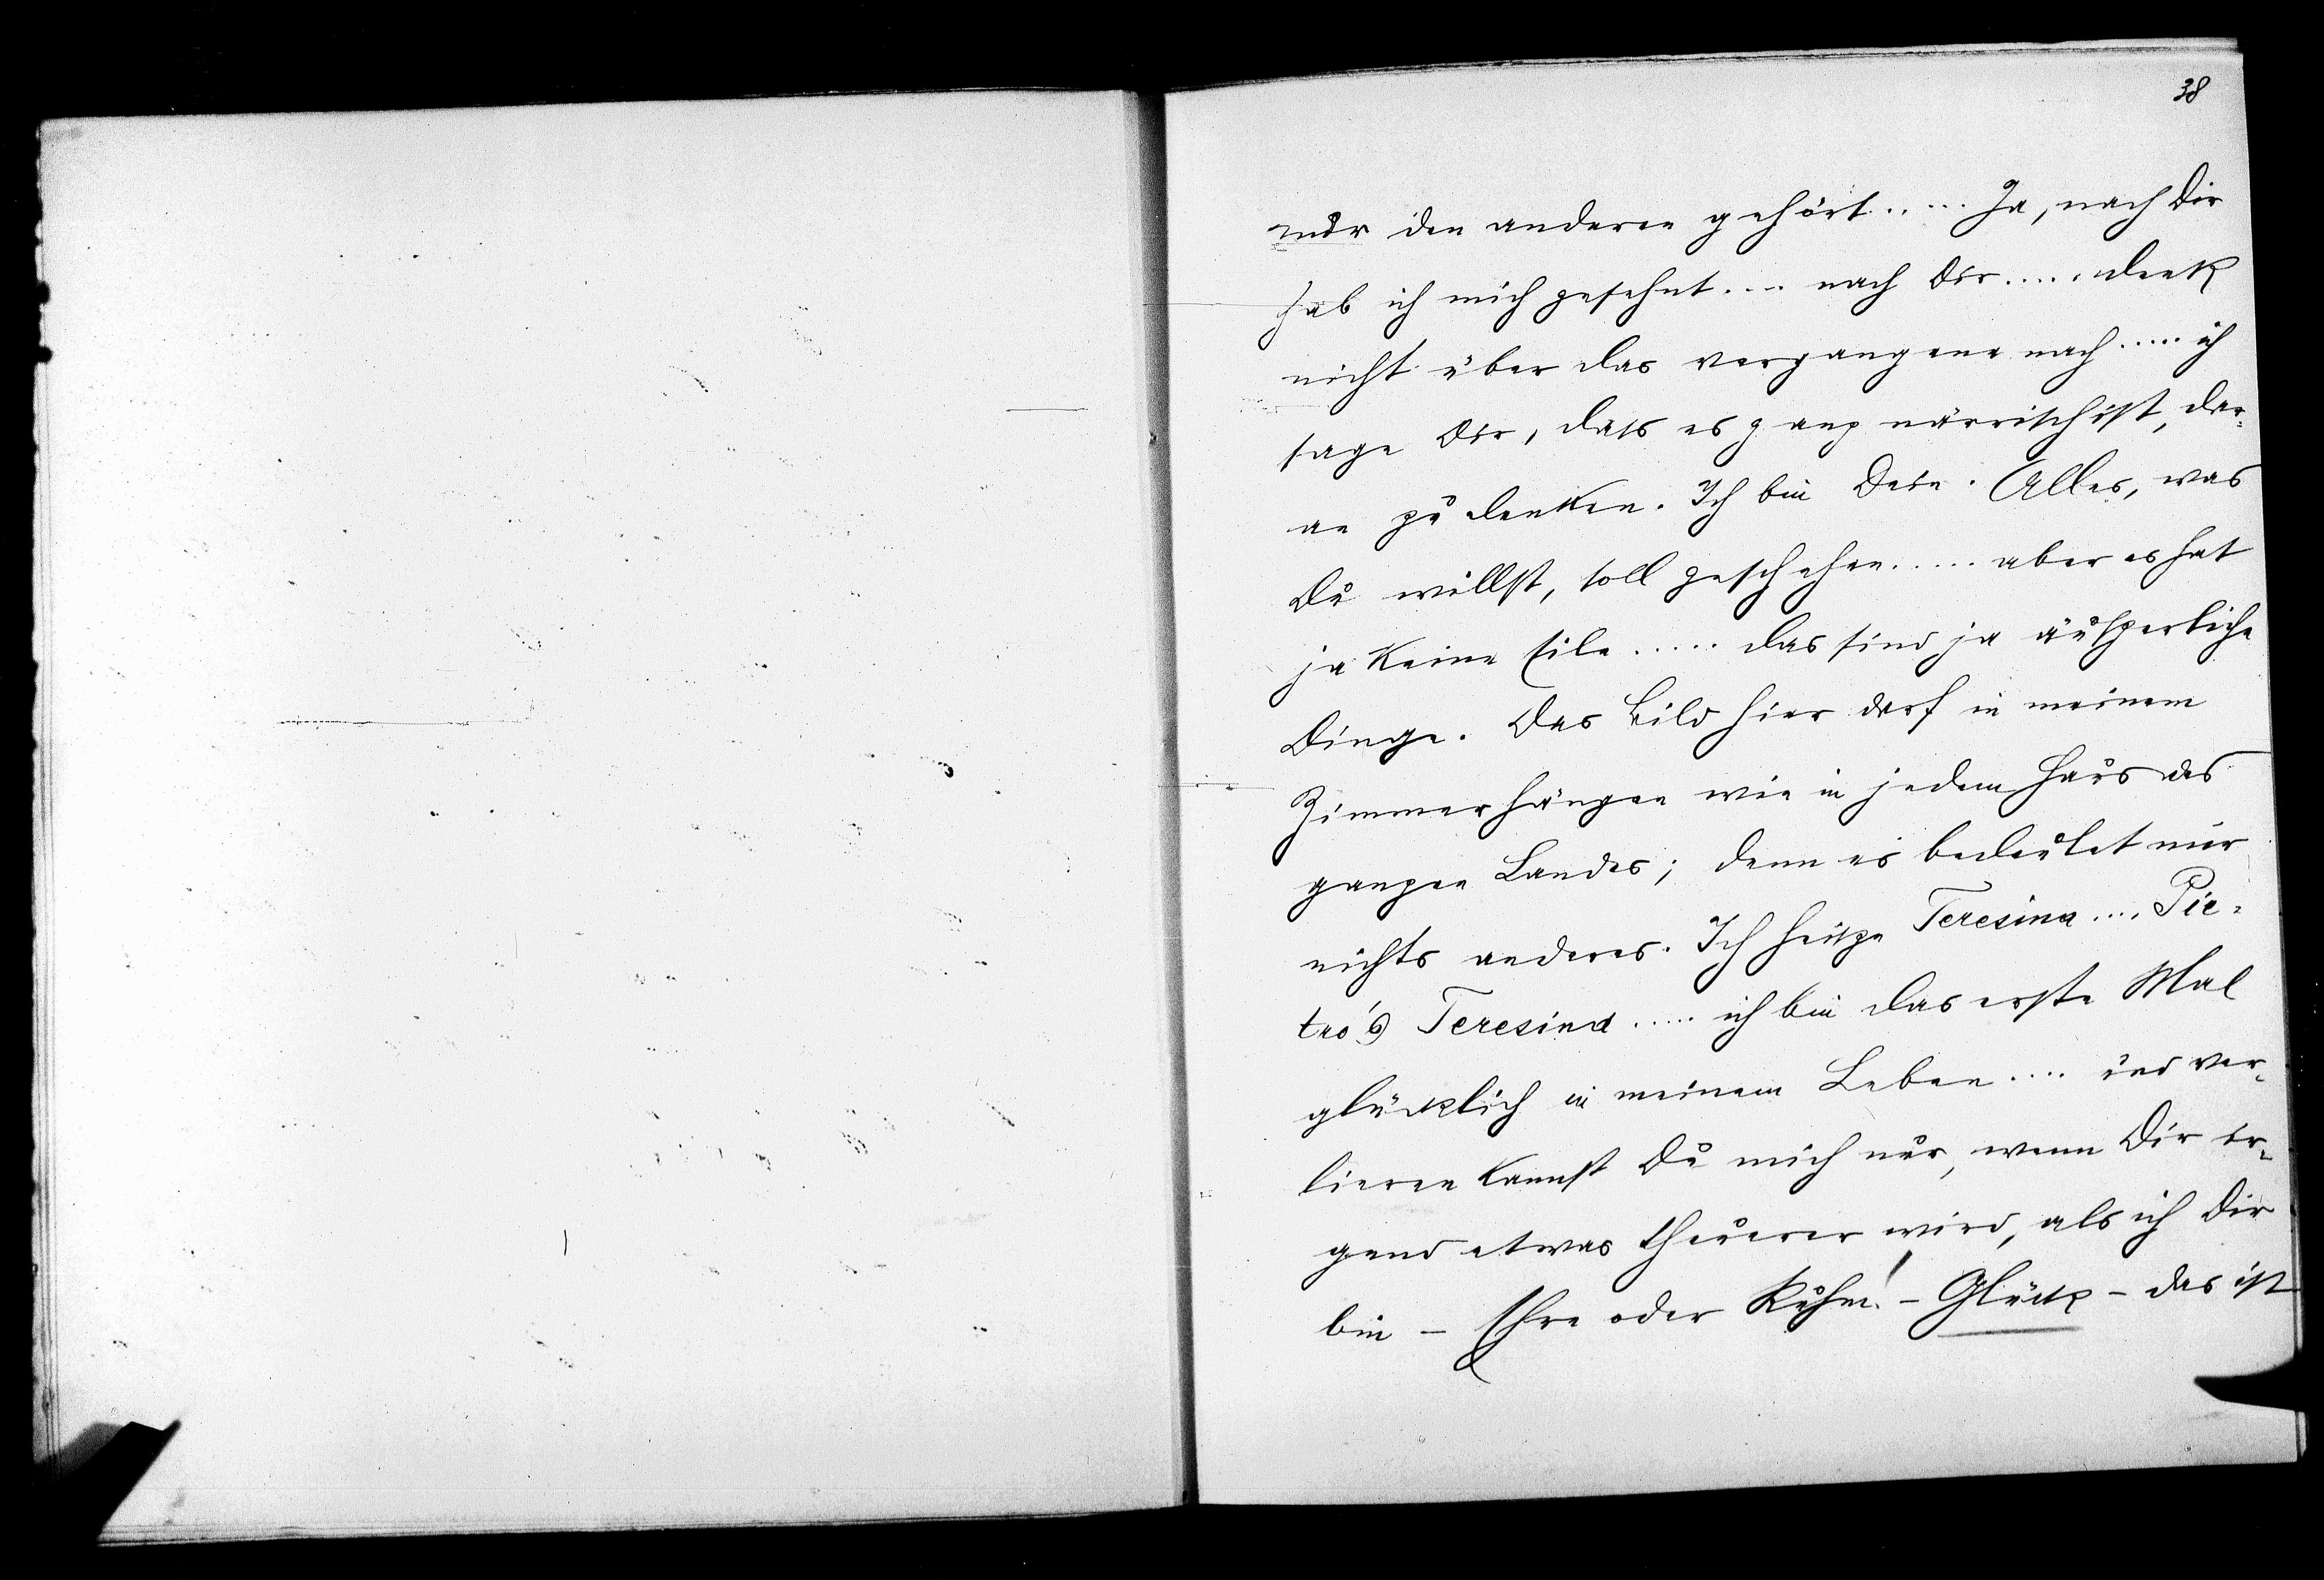 38
nur den anderen gehört..... Ja, nach Dir
hab ich mich gesehnt.... nach Dir..... denk
nicht über das vergangene nach..... ich
sage Dir, dass es ganz närrisch ist, dar-
an zu denken. Ich bin Dein. Alles, was
Du willst, soll geschehen..... aber es hat
ja keine Eile..... das sind ja äußerliche
Dinge. Das Bild hier darf in meinem
Zimmer hängen wie in jedem Haus des
ganzen Landes; denn es bedeutet mir
nichts anderes. Ich heiße Teresina.... Pie-
tro's Teresina..... ich bin das erste Mal
glücklich in meinem Leben.... und ver-
lieren kannst Du mich nur, wenn Dir ir-
gend etwas theuerer wird, als ich Dir
bin – Ehre oder Ruhm! – Glück – das ist